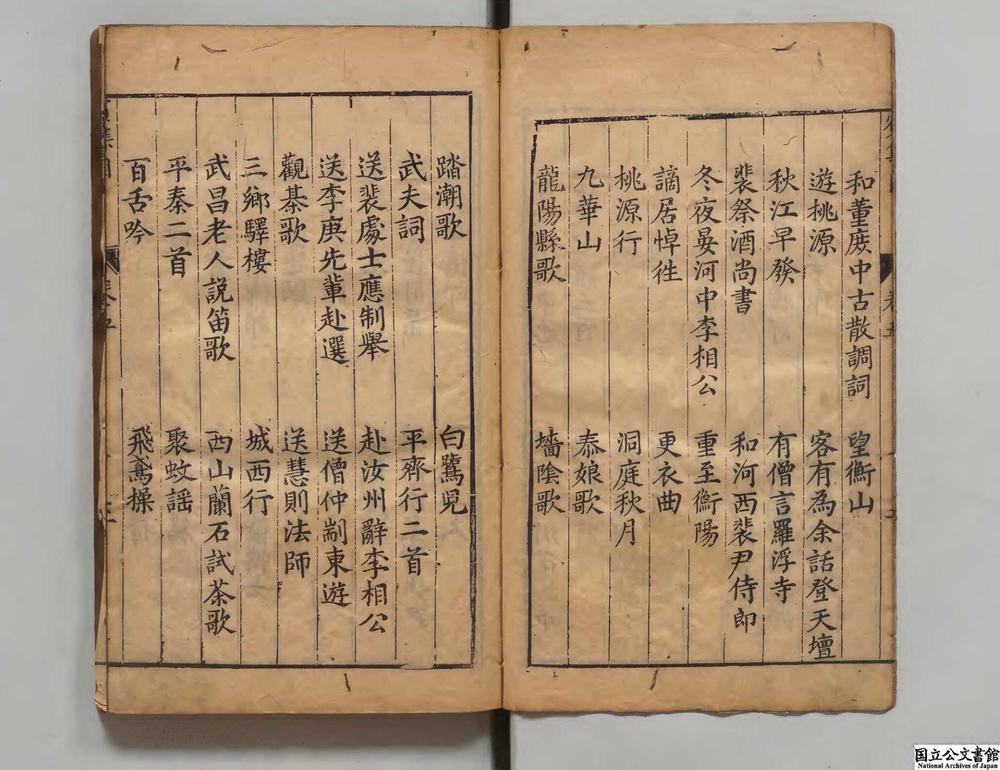 和董庻中古散調詞　望衡山
遊桃源　客有為余話登天壇
秋江早發　有僧言羅浮寺
裴祭酒尚書　和河西裴尹侍郎
冬夜晏河中李相公　重至衡陽
謫居悼徃　更衣曲
桃源行　洞庭秋月
九華山　泰娘歌
龍陽縣歌　墻陰歌
踏潮歌　白鷺児
武夫詞　平齊行二首
送裴處士應制舉　赴汝州辭李相公
送李庚先輩赴選　送僧仲剬東遊
觀棊歌　送慧則法師
三鄉驛樓　城西行
武昌老人説笛歌　西山蘭石試茶歌
平秦二首　聚蚊謡
百舌吟　飛鳶操
国立公文書館
National Archives of Japan